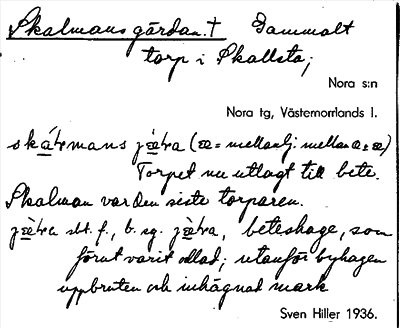 Skalmansgärdan.† Gammalt
torp i Skallsta;
Nora s:n
Nora tg, Västernorrlands l.
mans (æ = mellanlj. mellan a o. æ)
Torpet nu utlagt till bete.
Skalman var den siste torparen.
sbt. f., b. sg. beteshage, som
förut varit odlad; utanför byhagen
uppbruten och inhägnad mark
Sven Hiller 1936.